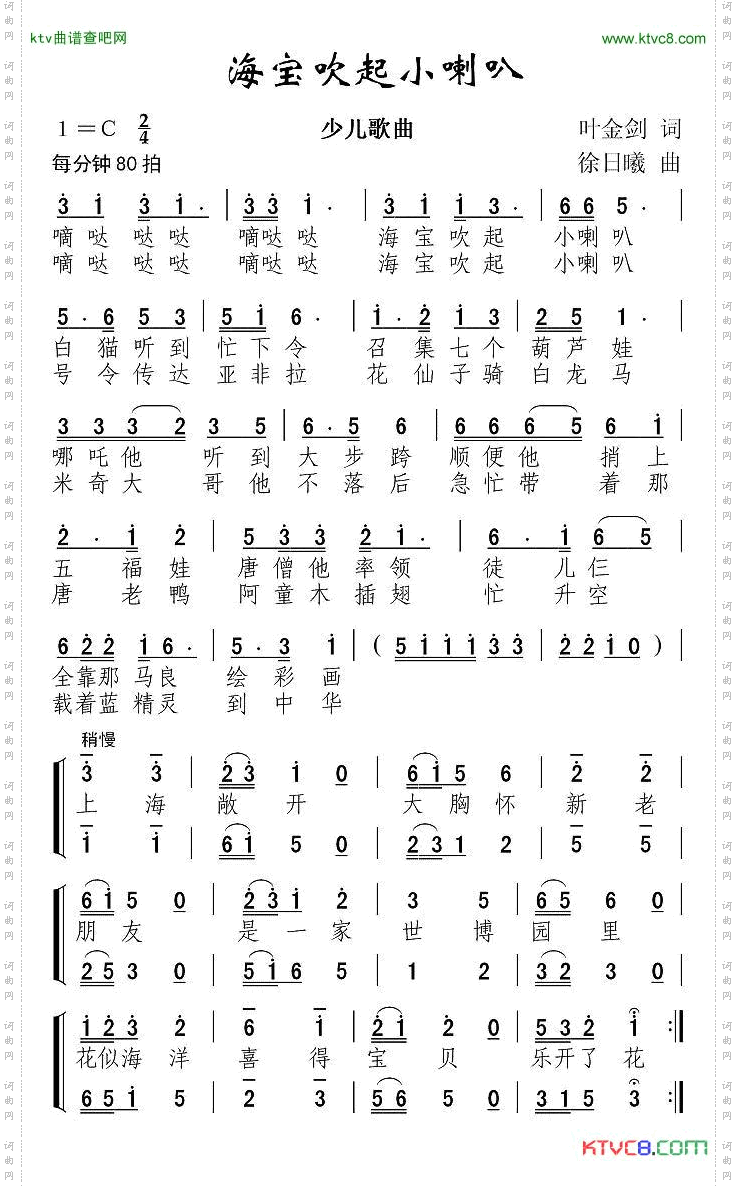 ktv曲谱查吧网
www.ktvc8.com
海宝吹起小喇叭
1=C 2/4
少儿歌曲
叶金剑 词
每分钟80拍
徐日曦 曲
3̇ 1̇ 3̇ 1̇· | 3̇ 3̇ 1̇· | 3̇ 1̇ 1̇ 3· | 6 6 5· |
嘀哒 哒哒 嘀哒哒 海宝吹起 小喇叭
嘀哒 哒哒 嘀哒哒 海宝吹起 小喇叭
5·6 5 3 | 5 1̇ 6· | 1̇·2̇ 1̇ 3 | 2 5 1· |
白猫听到 忙下令 召集七个 葫芦娃
号令传达 亚非拉 花仙子骑 白龙马
3 3 3 2 3 5 | 6·5 6 | 6 6 6 5 6 1̇ |
哪吒他 听到 大步跨 顺便他 捎上
米奇大 哥他 不落后 急忙带 着那
2̇·1̇ 2̇ | 5 3̇ 3̇ 2̇ 1̇· | 6·1̇ 6 5 |
五福娃 唐僧他率领 徒儿仨
唐老鸭 阿童木插翅 忙升空
6 2̇ 2̇ 1̇ 6· | 5·3 1̇ | (5 1̇ 1̇ 1̇ 3̇ 3̇ | 2̇ 2̇ 1̇ 0) |
全靠那 马良 绘彩画
载着蓝 精灵 到中华
稍慢
3̇ 3̇ | 2̇ 3̇ 1̇ 0 | 6 1̇ 5 6 | 2̇ 2̇ |
上海 敞开 大胸怀 新老
1̇ 1̇ | 6 1̇ 5 0 | 2 3 1 2 | 5 5 |
6 1̇ 5 0 | 2̇ 3̇ 1̇ 2̇ | 3 5 | 6 5 6 0 |
朋友 是一家 世博园里
2 5 3 0 | 5 1̇ 6 5 | 1 2 | 3 2 3 0 |
1̇ 2̇ 3̇ 2̇ | 6 1̇ | 2̇ 1̇ 2̇ 0 | 5 5 3̇ 2̇ 1̇ :||
花似海洋 喜得宝贝 乐开了花
6 5 1̇ 5 | 2 3 | 5 6 5 0 | 3 5 1̇ 5 3 :||
KTVC8.COM